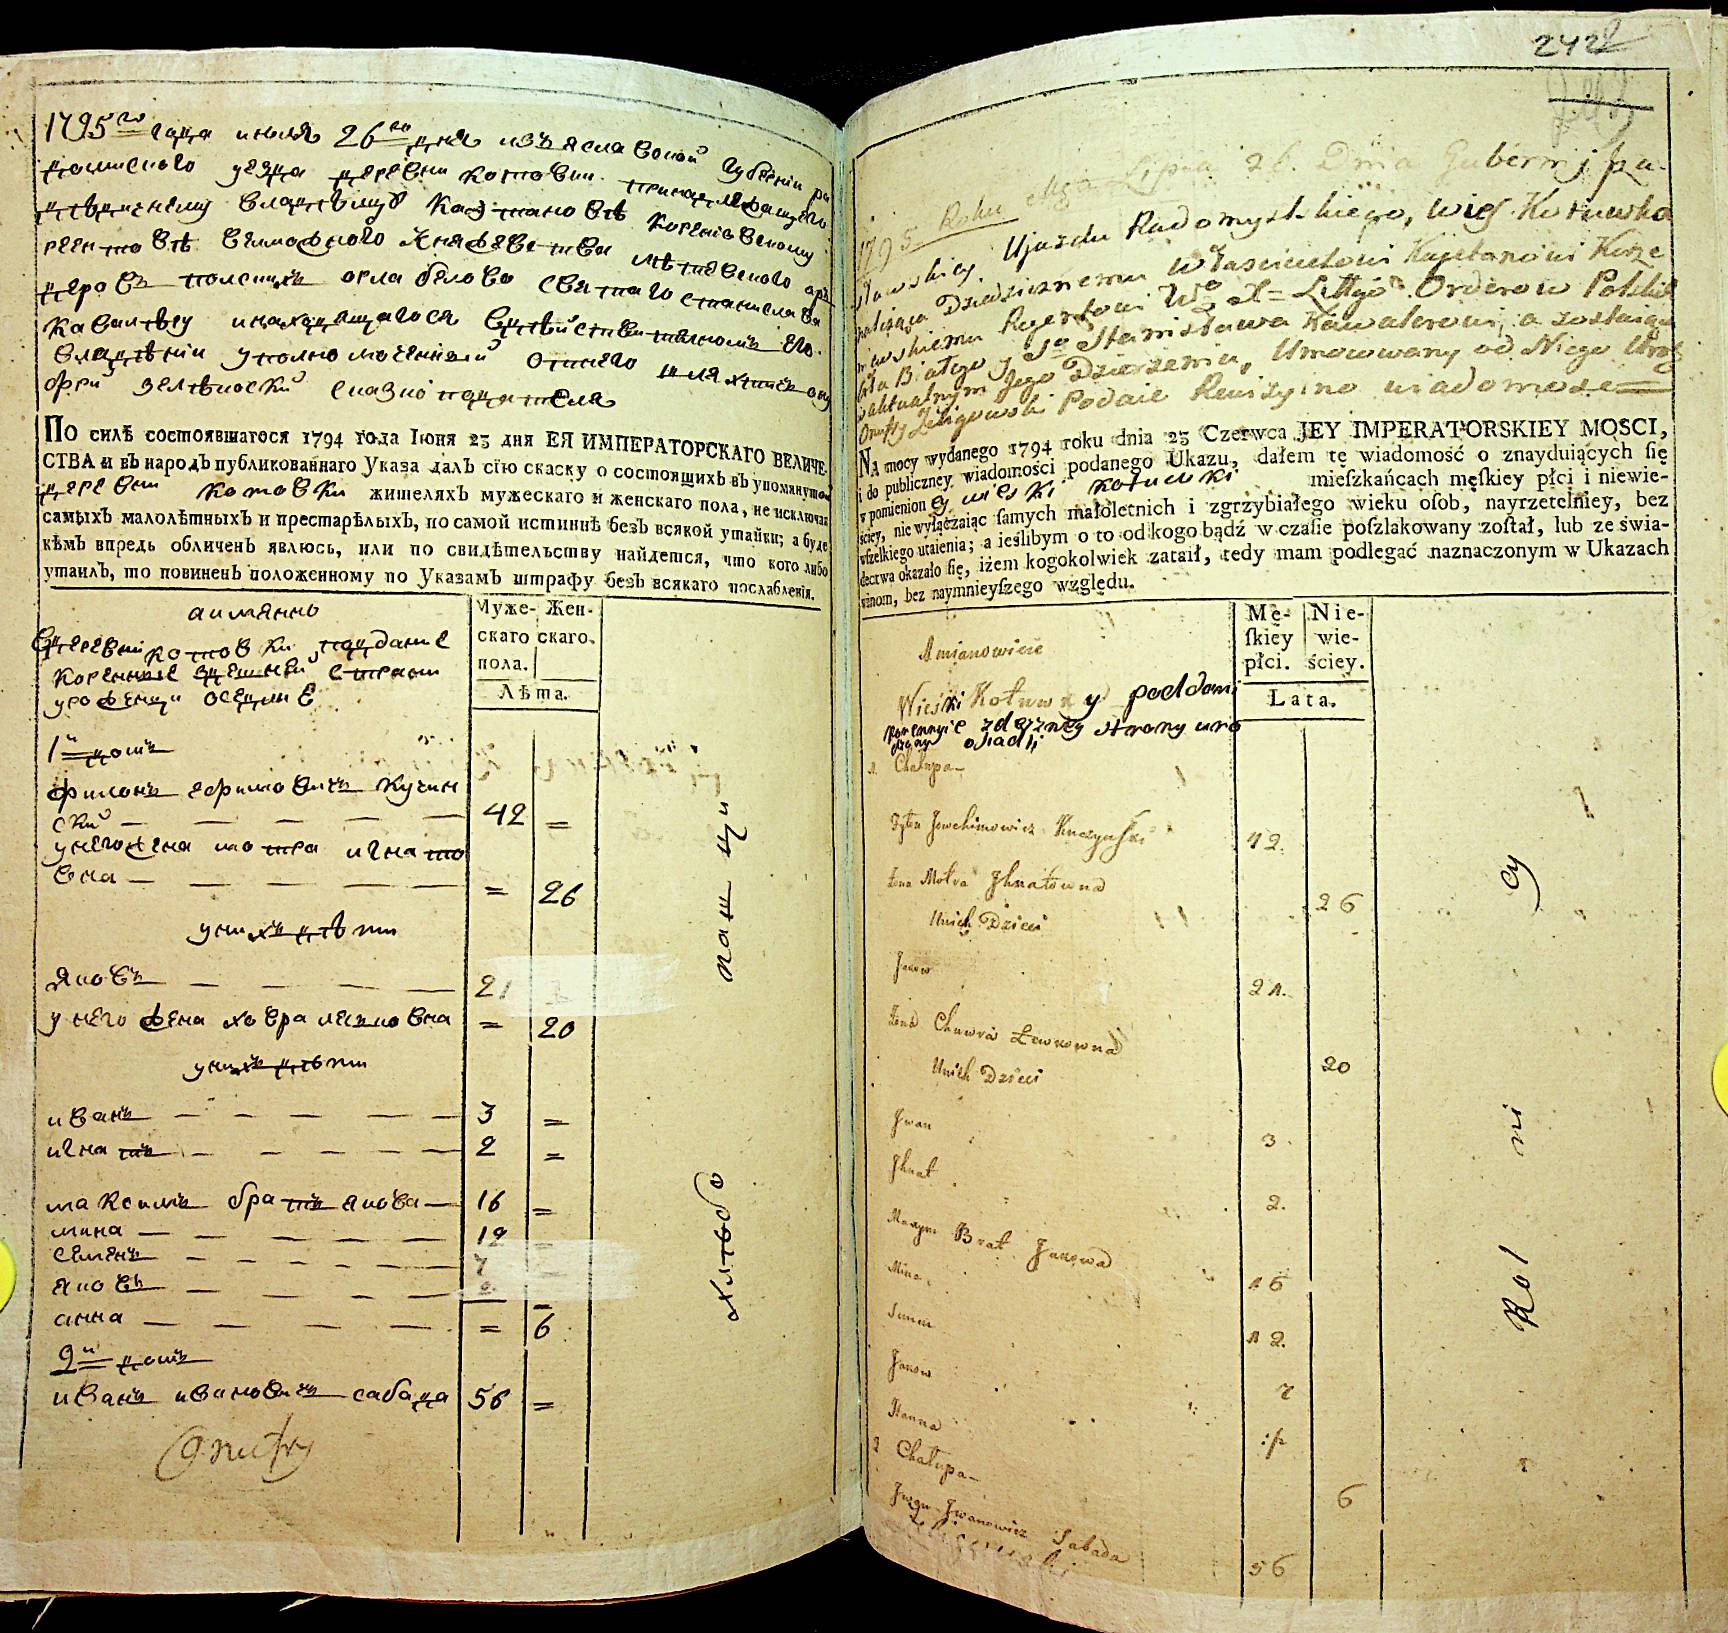 1795го года июля 26го дня изъяславской губернии ра
домисского уезда деревни котовки принадлежащего
дѣдичному владѣлцу каэтановѣ корженѣовскому
реентовѣ великого княжества литовского ор
деровъ полскихъ орла белого святаго станислава
кавалеру инаходящагося вдѣйствителномъ его
владѣнии уполномоченный отнего шляхтичъ ону
фрий зелѣнский сказкоподатель
По силѣ состоявшагося 1794 года Іюня 23 дня ЕЯ ИМПЕРАТОРСКАГО ВЕЛИЧЕ-
СТВА и въ народъ публикованнаго Указа далъ сїю скаску о состоящихъ въ упомянутой
деревни котовки жителяхъ мужескаго и женскаго пола, не исключая
самыхъ малолѣтныхъ и престарѣлыхъ, по самой истиннѣ безъ всякой утайки; а буде
кѣмъ впредь обличенъ явлюсь, или по свидѣтельству найдется, что кого либо
утаилъ, то повиненъ положенному по Указамъ штрафу безъ всякаго послабленія.
аимянно
Муже- Жен-
скаго скаго
пола.
Лѣта.
вдеревни котовки поддание
коренние здешней страни
уроженци оседлие
1й домъ
филонъ ефимовичъ кучин
ский — — — — — 42 =
унегожена мотра игнато
вна — — — — — = 26
унихъ дѣти
яковъ — — — — 21
у него жена ховра левковна = 20
унихъ дѣти
иванъ — — — — 3 =
игнатъ — — — — 2 =
максимъ братъ якова — 16 =
мина — — — — — 12
семенъ — — — — — 7
яковъ — — — — —
анна — — — — — = 6
2й домъ
иванъ ивановичъ сабада 56 =
Onufry
паш ци
хлѣбо
242
1795 Roku Mca Lipca 26. Dnia Gubernij Iza
sławskiey Ujazdu Radomyslskiego, wieś Kotuwka
należąca Dziedzicznemu Właścicielowi Kajetanowi Korze
niowskiemu Regentowi Wo X= Littgo Orderow Polskich
Orła Białego y So Stanisława Kawalerowi, a zostaiąca
w aktualnym Jego Dzierżeniu, Umocowany od Niego Urodz
Onufry Zeligowski Podaie Rewizyino wiadomosc
Na mocy wydanego 1794 roku dnia 23 Czerwca JEY IMPERATORSKIEY MOSCI,
i do publiczney wiadomości podanego Ukazu, dałem tę wiadomość o znayduiących się
w pomienioney wieski kotuwki mieszkańcach męskiey płci i niewie-
ściey, nie wyłączaiąc samych małoletnich i zgrzybiałego wieku osob, nayrzetelniey, bez
wszelkiego utaienia; a ieślibym o to od kogo bądź w czasie poszlakowany został, lub ze świa-
dectwa okazało się, iżem kogokolwiek zataił, tedy mam podlegać naznaczonym w Ukazach
winom, bez naymnieyszego względu.
Amianowicie
Mę- Nie-
skiey wie-
płci. ściey.
Lata.
Wieski Kotuwky poddani
korennyie zdeszney strony uro
dzony osiadli
1. Chałupa
Fylon Jowchimowicz Kuczynski 42
Zona Motra Ihnatowna 26
Unich Dzieci
Jakow 21.
Zona Chowra Lewkowna 20
Unich Dzieci
Iwan 3
Ihnat 2.
Maxym Brat Jakowa 16
Mina 12.
Semen 7
Jakow
Hanna 6
2 Chałupa
Iwan Iwanowicz Sabada 56
Zeligowski
Rol ni cy